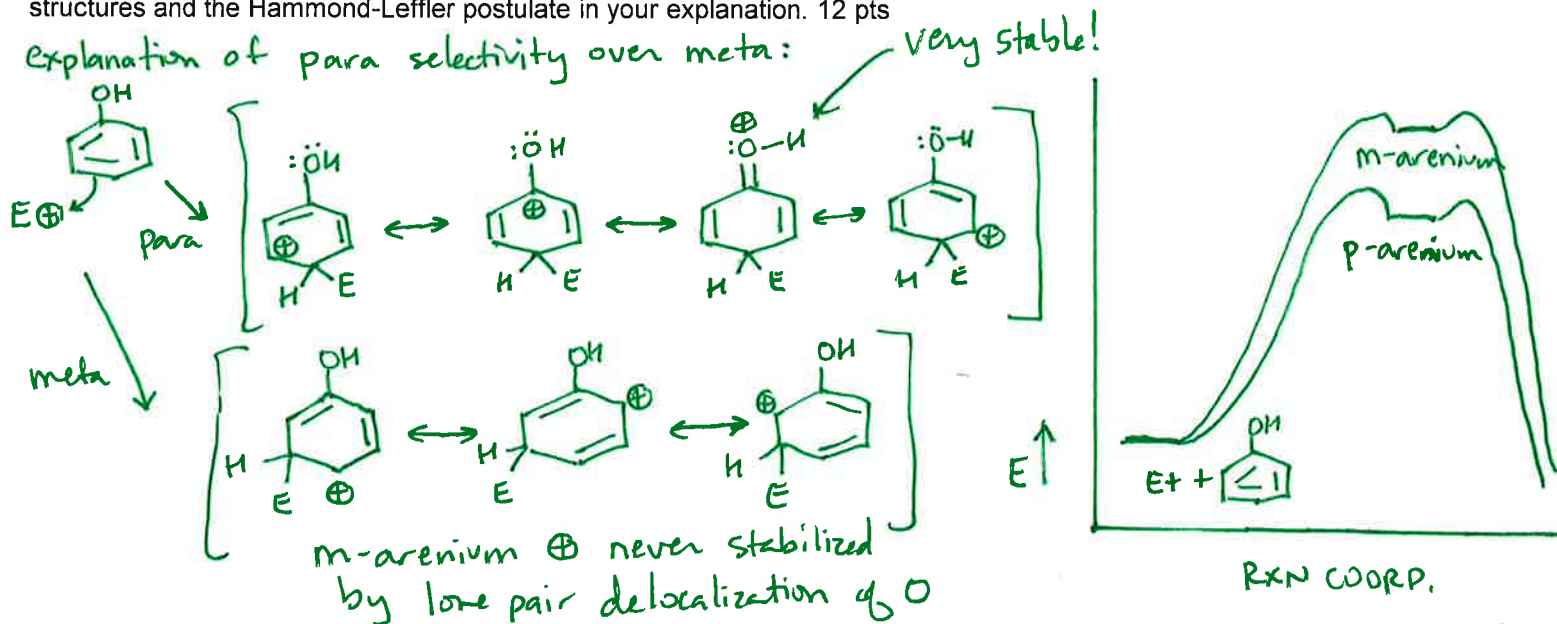 structures and the Hammond-Leffler postulate in your explanation. 12 pts
explanation of para selectivity over meta:
very stable!
OH
E⊕
para
meta
:ÖH
⊕
H E
:ÖH
⊕
H E
⊕
:O-H
H E
:Ö-H
⊕
H E
OH
H
E
⊕
OH
⊕
H
E
OH
⊕
H
E
m-arenium ⊕ never stabilized
by lone pair delocalization of O
m-arenium
p-arenium
E↑
OH
E+ +
RXN COORD.